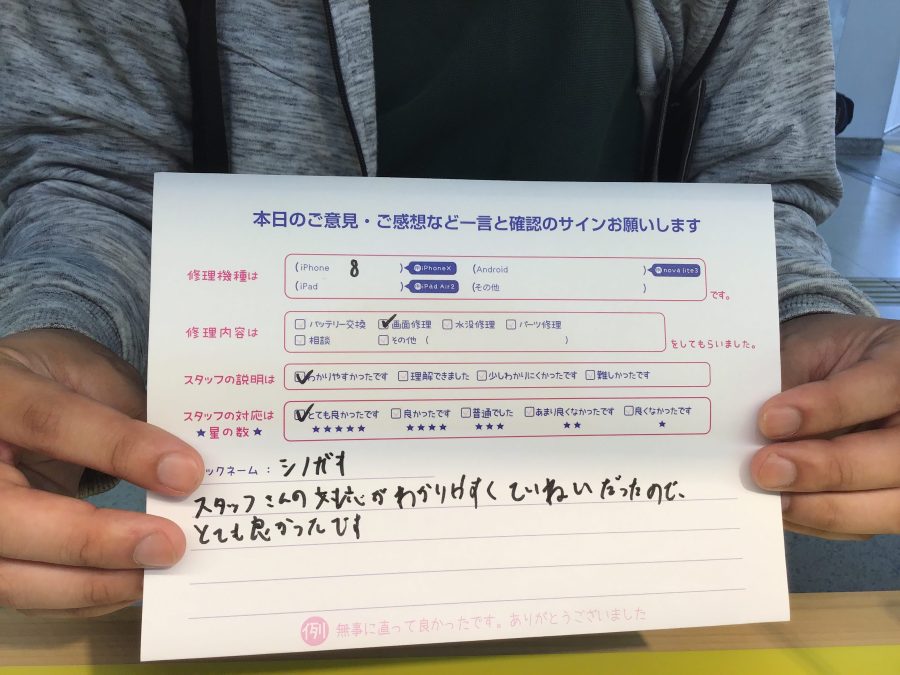 本日のご意見・ご感想など一言と確認のサインお願いします
修理機種は (iPhone 8 ) iPhoneX (Android ) nova lite3
(iPad ) iPad Air2 (その他 ) です。
修理内容は □バッテリー交換 ☑画面修理 □水没修理 □パーツ修理
□相談 □その他 ( ) をしてもらいました。
スタッフの説明は ☑わかりやすかったです □理解できました □少しわかりにくかったです □難しかったです
スタッフの対応は ☑とても良かったです □良かったです □普通でした □あまり良くなかったです □良くなかったです
★星の数★ ★★★★★ ★★★★ ★★★ ★★ ★
ックネーム : シノガキ
スタッフさんの対応がわかりやすくていねいだったので、
とても良かったです
例 無事に直って良かったです。ありがとうございました